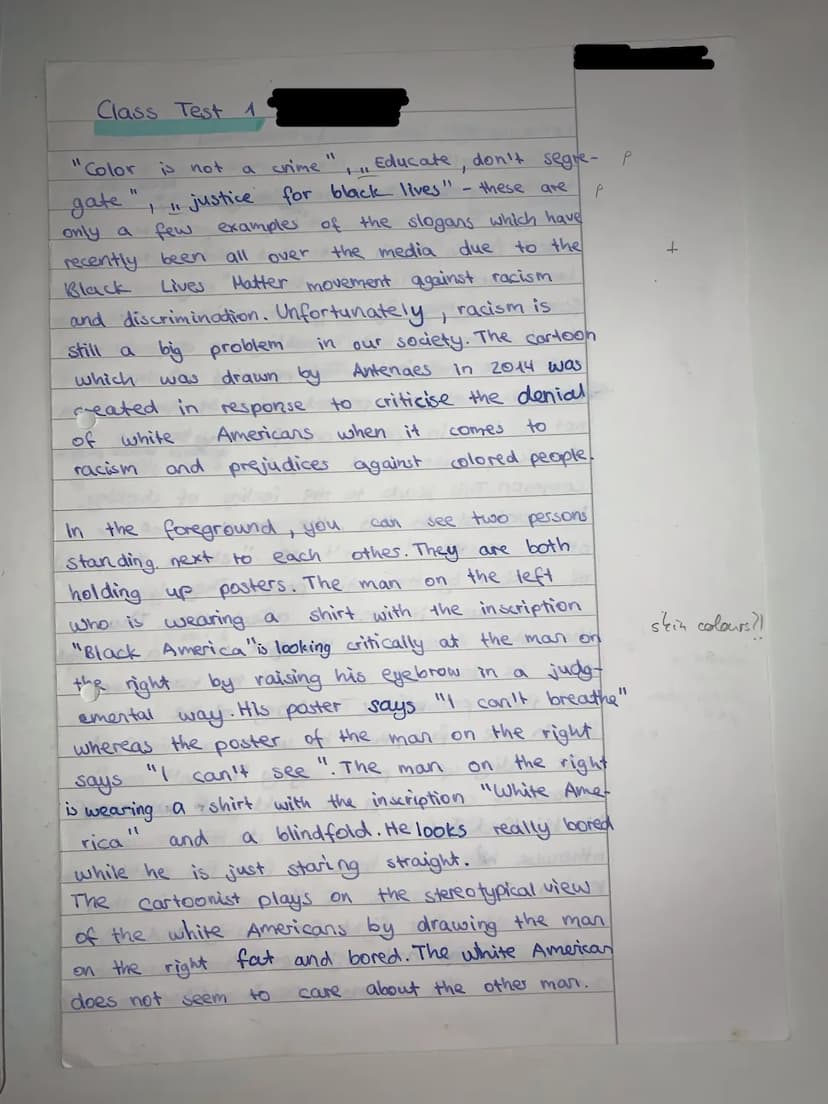 Class Test 1
"Color is not a crime", „Educate, don't segre- P
gate", „justice for black lives" - these are P
only a few examples of the slogans which have
recently been all over the media due to the +
Black Lives Matter movement against racism
and discrimination. Unfortunately, racism is
still a big problem in our society. The cartoon
which was drawn by Antenaes in 2014 was
created in response to criticise the denial
of white Americans when it comes to
racism and prejudices against colored people.
In the foreground, you can see two persons
standing next to each other. They are both
holding up posters. The man on the left
who is wearing a shirt with the inscription skin colours?!
"Black America" is looking critically at the man on
the right by raising his eyebrow in a judg-
emental way. His poster says "I can't breathe"
whereas the poster of the man on the right
says "I can't see". The man on the right
is wearing a shirt with the inscription "White Ame-
rica" and a blindfold. He looks really bored
while he is just staring straight.
The cartoonist plays on the stereotypical view
of the white Americans by drawing the man
on the right fat and bored. The white American
does not seem to care about the other man.